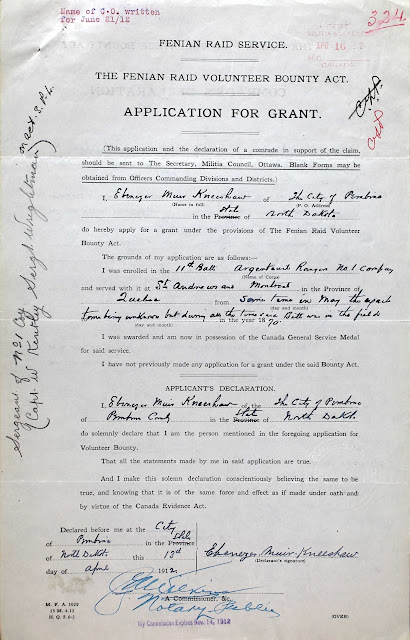 Name of C.O. written
for June 21/12
324
APR 16
FENIAN RAID SERVICE.
THE FENIAN RAID VOLUNTEER BOUNTY ACT.
APPLICATION FOR GRANT.
(This application and the declaration of a comrade in support of the claim,
should be sent to The Secretary, Militia Council, Ottawa. Blank Forms may be
obtained from Officers Commanding Divisions and Districts.)
I, Ebenezer Muir Kneeshaw of The City of Pembina
(Name in full) (P. O. Address)
in the Province of State North Dakota
do hereby apply for a grant under the provisions of The Fenian Raid Volunteer
Bounty Act.
The grounds of my application are as follows:—
I was enrolled in the 11th Batt Argenteuil Rangers No 1 Company
(Name of Corps)
and served with it at St Andrews and Montreal in the Province of
Quebec from some time in May the exact
(day and month)
time being unknown but during all the time said Batt was in the field
(day and month) in the year 1870.
I was awarded and am now in possession of the Canada General Service Medal
for said service.
I have not previously made any application for a grant under the said Bounty Act.
APPLICANT'S DECLARATION.
I, Ebenezer Muir Kneeshaw of the The City of Pembina
of Pembina County in the Province of State North Dakota
do solemnly declare that I am the person mentioned in the foregoing application for
Volunteer Bounty.
That all the statements made by me in said application are true.
And I make this solemn declaration conscientiously believing the same to be
true, and knowing that it is of the same force and effect as if made under oath and
by virtue of the Canada Evidence Act.
Declared before me at the City
of Pembina in the Province State
of North Dakota this 13th
day of April 1912.
Ebenezer Muir Kneeshaw
(Declarant's signature)
A Commissioner, &c.
Notary Public
My Commission Expires Nov. 14, 1912
M. F. A. 1029
15 M.-4-12
(OVER)
Sergeant of No 1 Coy
(Capt W Kentley Sergt Weightman)